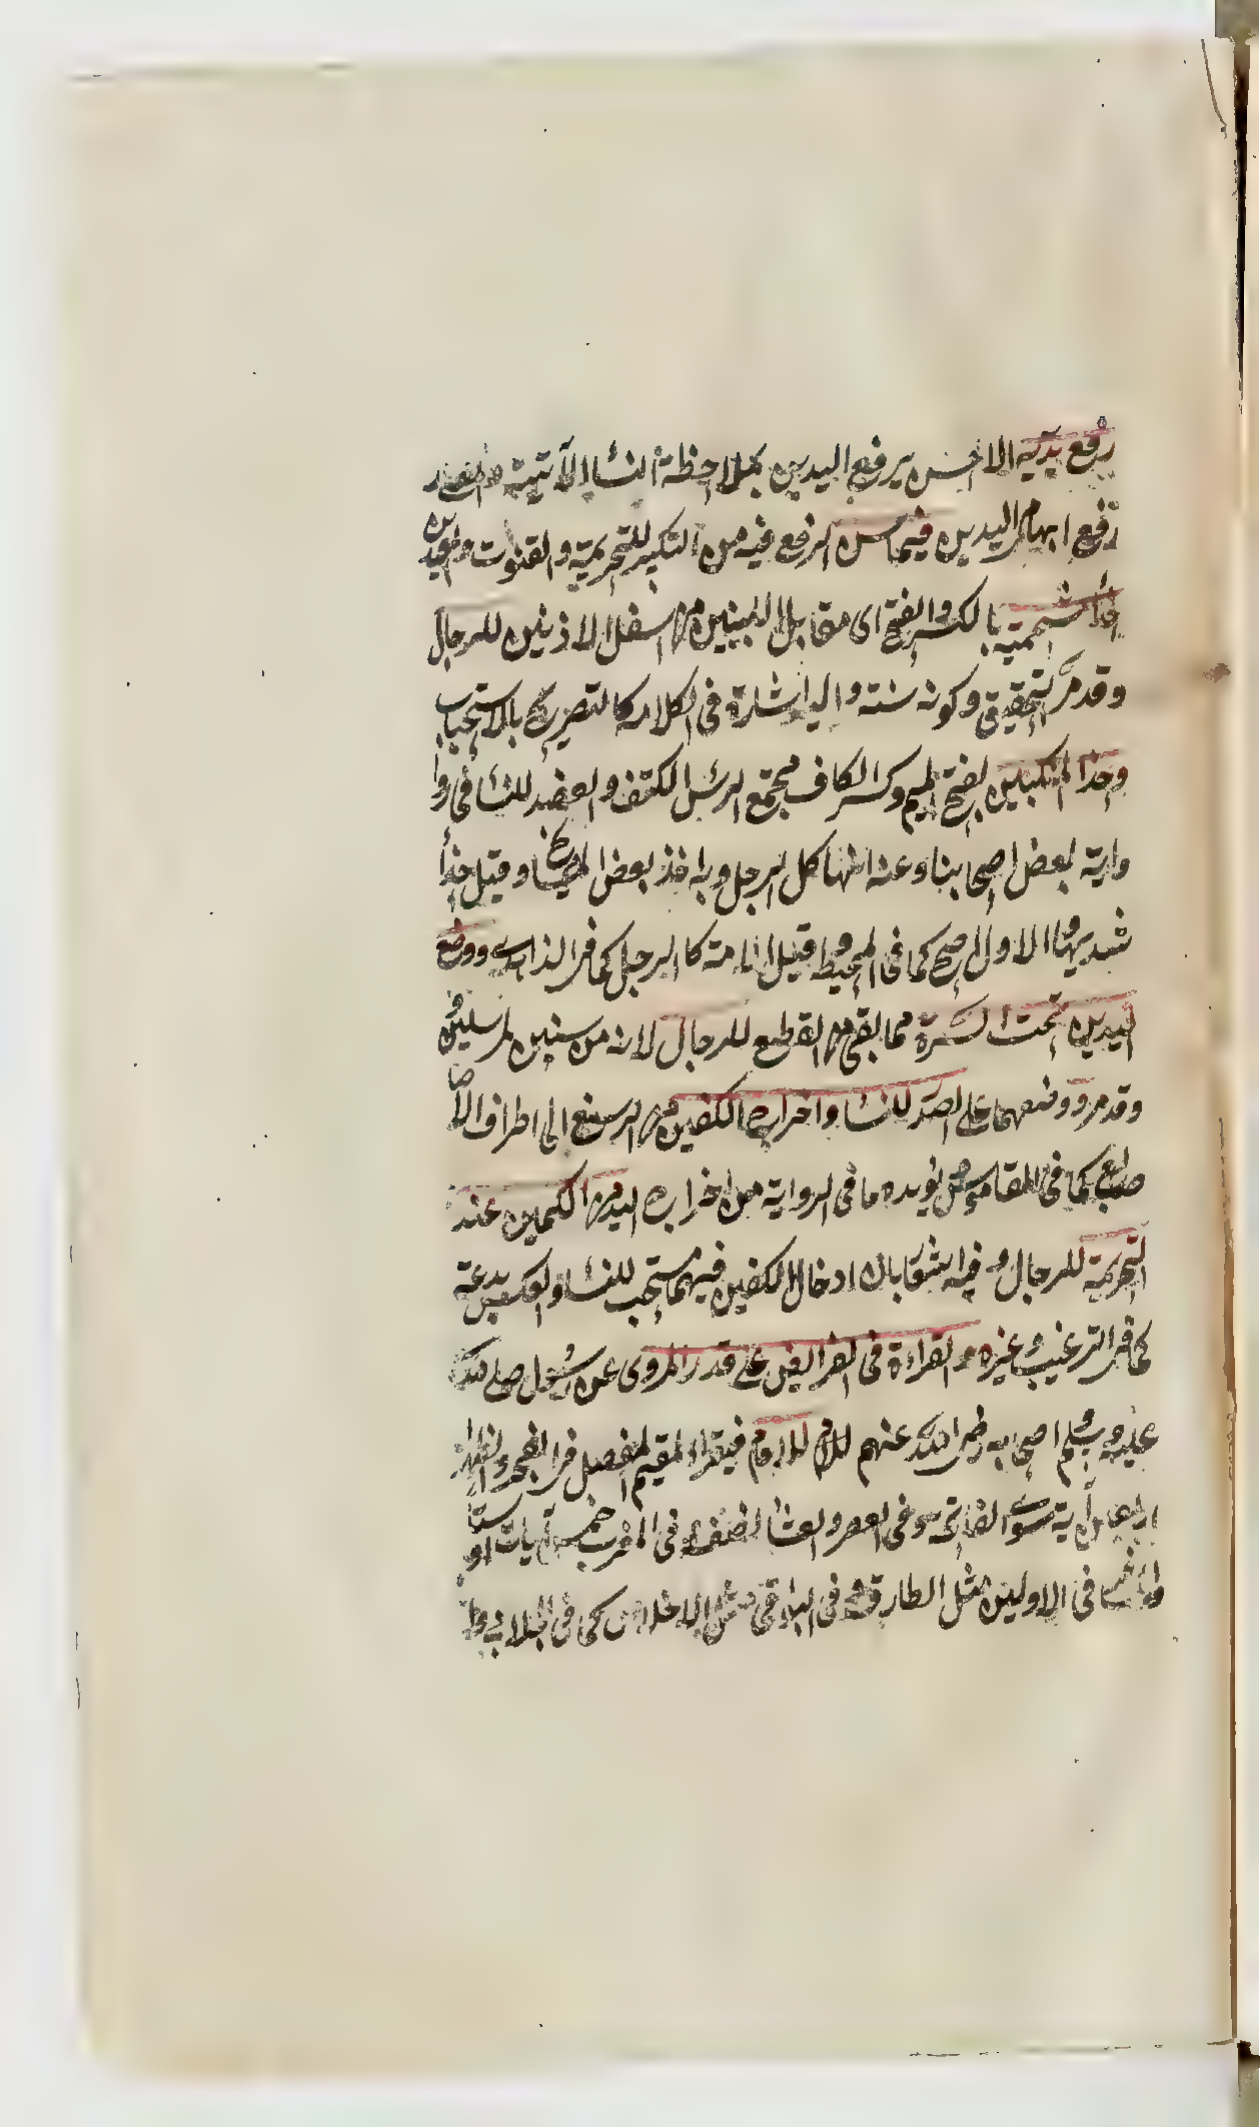 رفع يديه الاحسن رفع اليدين بملاحظة النساء الآتية
رفع ابهامى اليدين فيما سن الرفع فيه من التكبير للتحريمة والقنوت والعيدين
حذاء شحمتيه بالكسر والفتح اى مقابل اللينين من اسفل الاذنين للرجال
وقد مر التحقيق وكونه سنة واليه اشارة فى الكلام كالتصريح بالاستحباب
وحذا المنكبين بفتح الميم وكسر الكاف مجتمع الرأس الكتف والعضد للنساء فى روا
واية بعض اصحابنا وعنه انها كالرجل وبه اخذ بعض المشايخ وقيل حذاء
ثدييها والاول اصح كما فى المحيط وقيل الامة كالرجل كما فى الزاهدى ووضع
اليدين تحت السرة مما بقى من القطع للرجال لانه من سنن المرسلين
وقد مر ووضعهما على الصدر للنساء واخراج الكفين من الرسغ الى اطراف الأصا
صابع كما فى المقاموس يؤيده ما فى الرواية من اخراج اليد من الكمين عند
التحريمة للرجال وفيه اشعار بان ادخال الكفين فيهما مستحب للنساء والعكس بدعة
كما فى الترغيب وغيره والقراءة فى الفرايض على قدر المروى عن رسول صلى الله
عليه وسلم واصحابه رضى الله عنهم للامام فيقراء المقيم المفصل فى الفجر والظهر
اربعين آية سوى الفاتحة وفى العصر والعشا نصفه وفى المغرب خمس آيات او ستا
فى الاولين مثل الطارق وفى الباقى مثل الاخلاص كما فى الجلابى